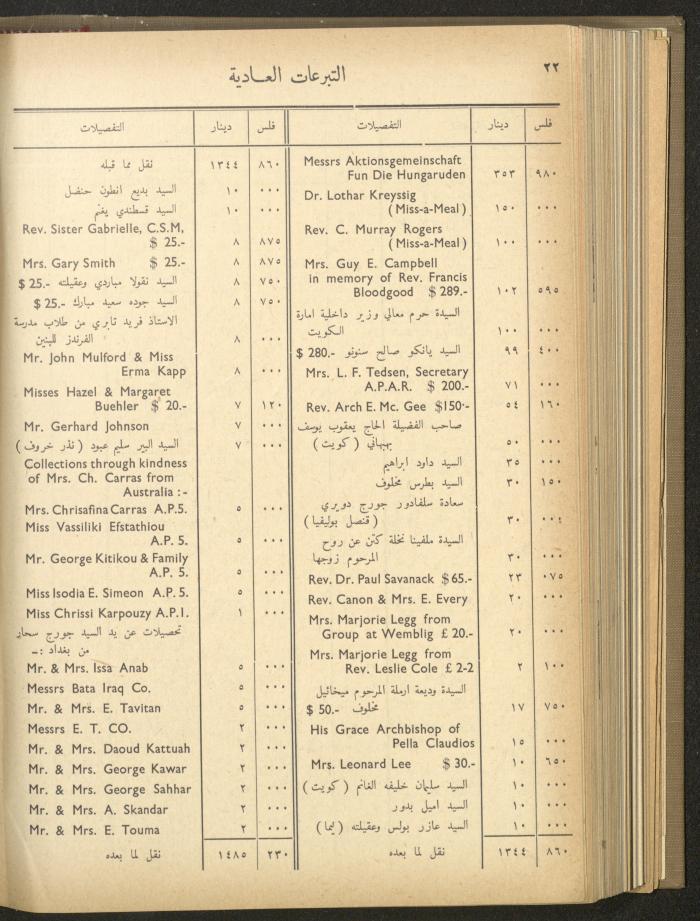 ٢٢
التبرعات العـادية
فلس دينار التفصيلات
Messrs Aktionsgemeinschaft
Fun Die Hungaruden ٣٥٣ ٩٨٠
Dr. Lothar Kreyssig
(Miss-a-Meal) ١٥٠ ٠٠٠
Rev. C. Murray Rogers
(Miss-a-Meal) ١٠٠ ٠٠٠
Mrs. Guy E. Campbell
in memory of Rev. Francis
Bloodgood $ 289.- ١٠٢ ٥٩٥
السيدة حرم معالي وزير داخلية امارة
الكويت ١٠٠ ٠٠٠
السيد يانكو صالح سنونو $ 280.- ٩٩ ٤٠٠
Mrs. L. F. Tedsen, Secretary
A.P.A.R. $ 200.- ٧١ ٠٠٠
Rev. Arch E. Mc. Gee $150.- ٥٤ ١٦٠
صاحب الفضيلة الحاج يعقوب يوسف
بهبهاني (كويت) ٥٠ ٠٠٠
السيد داود ابراهيم ٣٥ ٠٠٠
السيد بطرس مخلوف ٣٠ ١٥٠
سعادة سلفادور جورج دويري
(قنصل بوليفيا) ٣٠ ٠٠٤
السيدة ملفينا نخلة كتن عن روح
المرحوم زوجها ٣٠ ٠٠٠
Rev. Dr. Paul Savanack $ 65.- ٢٣ ٠٧٥
Rev. Canon & Mrs. E. Every ٢٠ ٠٠٠
Mrs. Marjorie Legg from
Group at Wemblig £ 20.- ٢٠ ٠٠٠
Mrs. Marjorie Legg from
Rev. Leslie Cole £ 2-2 ٢ ١٠٠
السيدة وديعة ارملة المرحوم ميخائيل
مخلوف $ 50.- ١٧ ٧٥٠
His Grace Archbishop of
Pella Claudios ١٥ ٠٠٠
Mrs. Leonard Lee $ 30.- ١٠ ٦٥٠
السيد سليمان خليفه الغانم (كويت) ١٠ ٠٠٠
السيد اميل بدور ١٠ ٠٠٠
السيد عازر بولس وعقيلته (ليما) ١٠ ٠٠٠
نقل لما بعده ١٣٤٤ ٨٦٠
فلس دينار التفصيلات
نقل مما قبله ١٣٤٤ ٨٦٠
السيد بديع انطون حنضل ١٠ ٠٠٠
السيد قسطندي يغنم ١٠ ٠٠٠
Rev. Sister Gabrielle, C.S.M,
$ 25.- ٨ ٨٧٥
Mrs. Gary Smith $ 25.- ٨ ٨٧٥
السيد نقولا مباردي وعقيلته $ 25.- ٨ ٧٥٠
السيد جوده سعيد مبارك $ 25.- ٨ ٧٥٠
الاستاذ فريد تابري من طلاب مدرسة
الفرندز للبنين ٨ ٠٠٠
Mr. John Mulford & Miss
Erma Kapp ٨ ٠٠٠
Misses Hazel & Margaret
Buehler $ 20.- ٧ ١٢٠
Mr. Gerhard Johnson ٧ ٠٠٠
السيد البير سليم عبود (نذر خروف) ٧ ٠٠٠
Collections through kindness
of Mrs. Ch. Carras from
Australia :-
Mrs. Chrisafina Carras A.P.5. ٥ ٠٠٠
Miss Vassiliki Efstathiou
A.P. 5. ٥ ٠٠٠
Mr. George Kitikou & Family
A.P. 5. ٥ ٠٠٠
Miss Isodia E. Simeon A.P. 5. ٥ ٠٠٠
Miss Chrissi Karpouzy A.P.I. ١ ٠٠٠
تحصيلات عن يد السيد جورج سحار
من بغداد :ـ
Mr. & Mrs. Issa Anab ٥ ٠٠٠
Messrs Bata Iraq Co. ٥ ٠٠٠
Mr. & Mrs. E. Tavitan ٥ ٠٠٠
Messrs E. T. CO. ٢ ٠٠٠
Mr. & Mrs. Daoud Kattuah ٢ ٠٠٠
Mr. & Mrs. George Kawar ٢ ٠٠٠
Mr. & Mrs. George Sahhar ٢ ٠٠٠
Mr. & Mrs. A. Skandar ٢ ٠٠٠
Mr. & Mrs. E. Touma ٢ ٠٠٠
نقل لما بعده ١٤٨٥ ٢٣٠